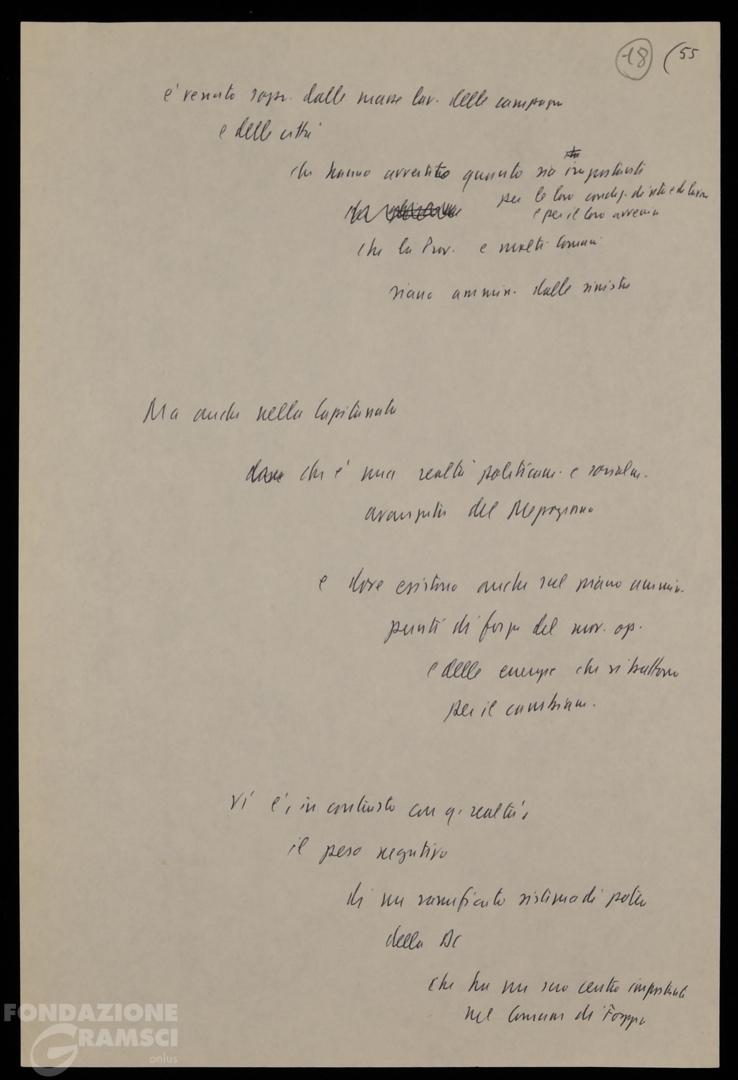 18 (55
è venuto sopr. dalle masse lav. delle campagne
e delle città
che hanno avvertito quanto sia importante
per le loro condiz. di vita e di lavoro
e per il loro avvenire
che la Prov. e molti Comuni
siano ammin. dalle sinistre
Ma anche nella Capitanata
che è una realtà politicam. e socialm.
avanzata del Mezzogiorno
e dove esistono anche sul piano ammin.
punti di forza del mov. op.
e delle energie che si battono
per il cambiam.
Vi è, in contrasto con q. realtà,
il peso negativo
di un ramificato sistema di potere
della DC
che ha un suo centro importante
nel Comune di Foggia
FONDAZIONE
GRAMSCI
onlus